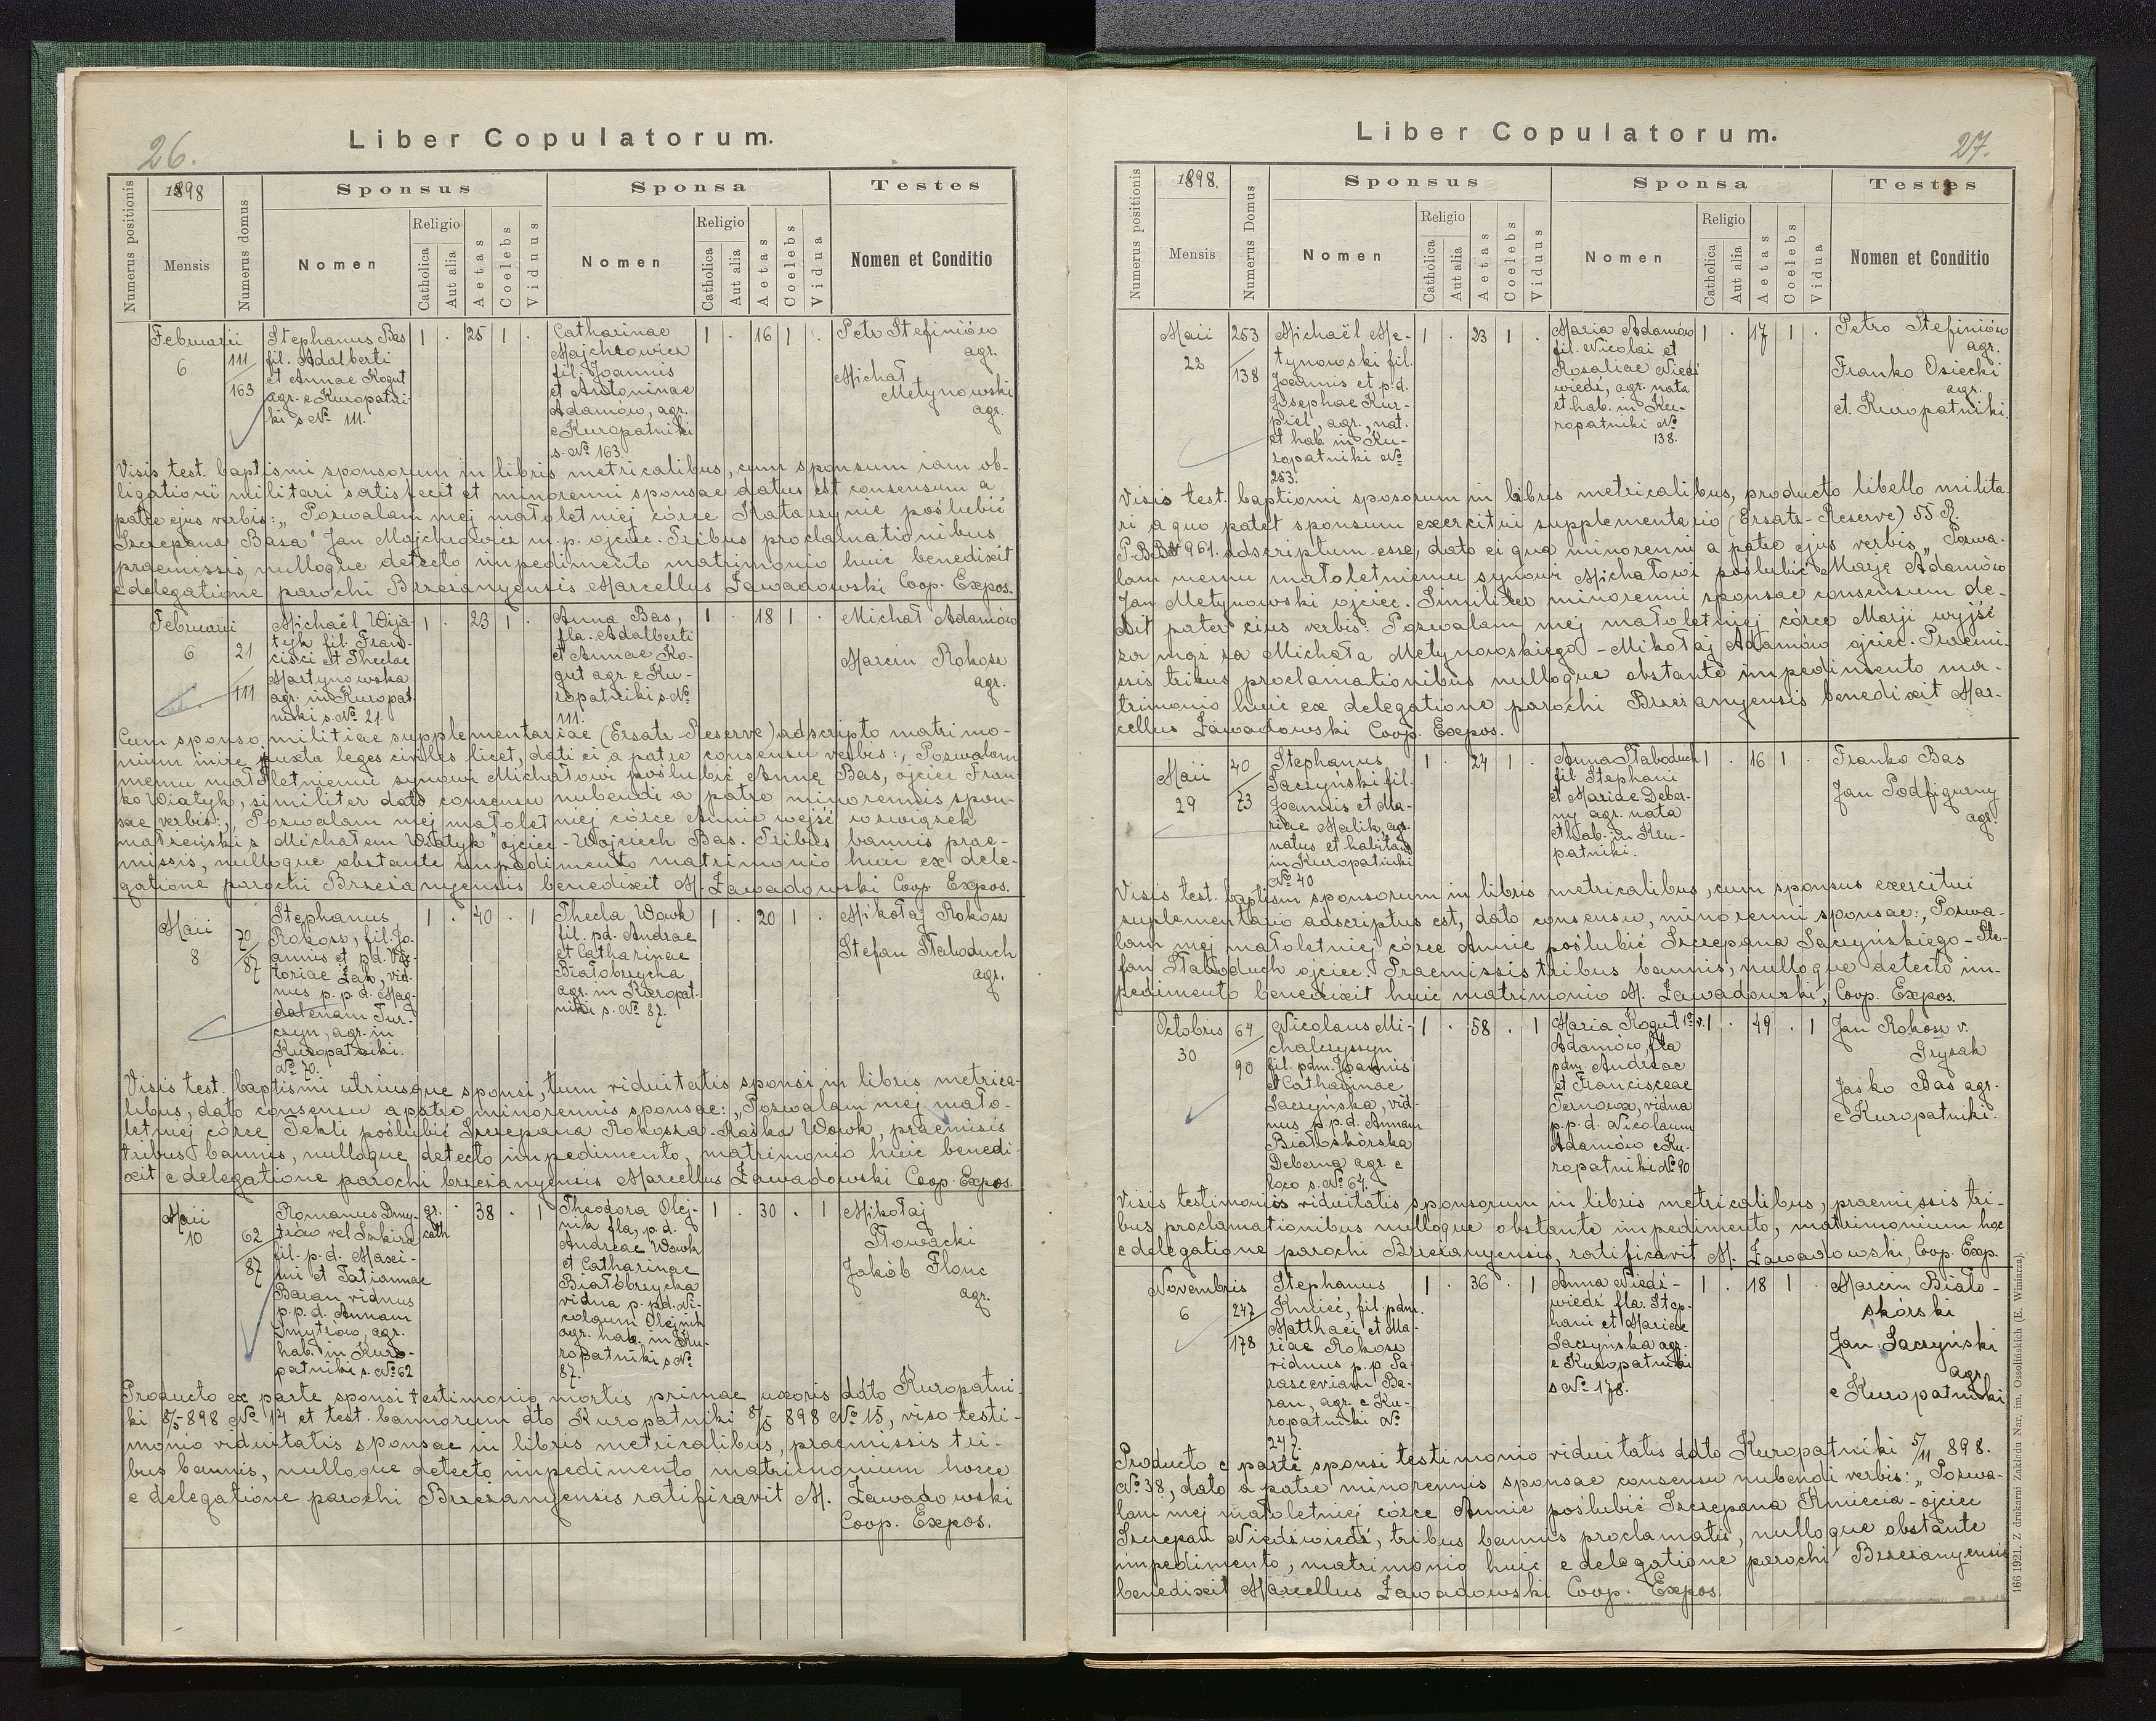 26.
Liber Copulatorum.
Numerus positionis
1898
Mensis
Numerus domus
Sponsus
Nomen
Religio
Catholica
Aut alia
Aetas
Coelebs
Viduus
Sponsa
Nomen
Religio
Catholica
Aut alia
Aetas
Coelebs
Vidua
Testes
Nomen et Conditio
Februarii
6
111
163
Stephanus Bas
fil. Adalberti
et Annae Kogut
agr. e Kuropatni-
ki s No 111.
1 . 25 1 .
Catharinae
Majchrowicz
fil. Joannis
et Antoninae
Adamów, agr.
e Kuropatniki
s. No 163.
1 . 16 1 .
Petr Stefiniów
agr.
Michał
Metynowski
agr.
Visis test. baptismi sponsorum in libris metricalibus, cum sponsum iam ob-
ligationi militari satisfecit et minorenni sponsae datus est consensum a
patre ejus verbis: „Pozwalam mej małoletniej córce Katarzynie poślubić
Szczepana Basa" Jan Majchrowicz m. p. ojciec. Tribus proclamationibus
praemissis, nulloque detecto impedimento matrimonio huic benedixit
e delegatione parochi Brzezanyensis Marcellus Zawadowski Coop. Expos.
Februarii
6
21
111
Michaël Wija-
tyk fil. Fran-
cisci et Theclae
Martynowska
agr. in Kuropat
niki s. No 21.
1 . 23 1 .
Anna Bas,
fla. Adalberti
et Annae Ko-
gut agr. e Ku-
ropatniki s. No
111.
1 . 18 1 .
Michał Adamów
Marcin Rokosz
agr.
Cum sponso militiae supplementariae (Ersatz-Reserve) adscripto matrimo-
nium inire juxta leges civiles licet, dati ei a patre consensu verbis: „Pozwalam
memu małoletniemu synowi Michałowi poślubić Annę Bas, ojciec Fran-
ko Wiatyk, similiter dato consensu nubendi a patre minorennis spon-
sae verbis: „Pozwalam mej małoletniej córce Annie wejść w związek
matżeński z Michałem Wiatyk" ojciec - Wojciech Bas. Tribus bannis prae-
missis, nulloque obstante impedimento matrimonio huic ex dele-
gatione parochi Brzezanyensis benedixit M. Zawadowski Coop. Expos.
Maii
8
70
87
Stephanus
Rokosz, fil. Jo-
annis et pd. Vic-
toriae Żak, vid-
uus p. p. d. Mag-
dalenam Tur-
czyn, agr. in
Kuropatniki.
No 70.
1 . 40 . 1
Thecla Wowk
fil. pd. Andreae
et Catharinae
Białobrzycka
agr. in Kuropat-
niki s. No 87.
1 . 20 1 .
Mikołaj Rokosz
Stefan Słaboduch
agr.
Visis test. baptismi utriusque sponsi, tum viduitatis sponsi in libris metrica-
libus, dato consensu a patre minorennis sponsae: „Pozwalam mej mało-
letniej córce Tekli poślubić Szczepana Rokosza - Kaśka Wowk, praemisis
tribus bannis, nulloque detecto impedimento, matrimonio huic benedi-
xit e delegatione parochi brzezanyensis Marcellus Zawadowski Coop. Expos.
Maii
10
62
87
Romanus Dmy-
trów vel Szkira
fil. p. d. Maxi-
mi et Tatiannae
Baran viduus
p. p. d. Annam
Dmytrów, agr.
hab. in Kuro-
patniki s. No 62
gr.
cath
. 38 . 1
Theodora Olej-
nik fla, p. d.
Andreae Wowk
et Catharinae
Białobrzycka
vidua p. pd. Ni-
colaum Olejnik
agr. hab. in Ku-
ropatniki s No
87.
1 . 30 . 1
Mikołaj
Słowacki
Jakób Flonc
agr.
Producto ex parte sponsi testimonio mortis primae uxoris dato Kuropatni-
ki 8/5 898 No 14 et test. bannorum dto Kuropatniki 8/5 898 No 15, viso testi-
monio viduitatis sponsae in libris metricalibus, praemissis tri-
bus bannis, nulloque detecto impedimento matrimonium hocce
e delegatione parochi Brzezanyensis ratificavit M. Zawadowski
Coop. Expos.
27.
Liber Copulatorum.
Numerus positionis
1898.
Mensis
Numerus Domus
Sponsus
Nomen
Religio
Catholica
Aut alia
Aetas
Coelebs
Viduus
Sponsa
Nomen
Religio
Catholica
Aut alia
Aetas
Coelebs
Vidua
Testes
Nomen et Conditio
Maii
22
253
138
Michaël Me-
tynowski fil.
Joannis et p. d.
Josephae Kur-
piel, agr., nat.
et hab. in Ku-
ropatniki No
253.
1 . 23 1 .
Maria Adamów
fil. Nicolai et
Rosaliae Niedź
wiedź, agr. nata
et hab. in Ku-
ropatniki No
138.
1 . 17 1 .
Petro Stefiniów
agr.
Franko Osiecki
agr.
et. Kuropatniki.
Visis test. baptismi sposorum in libris metricalibus, producto libello milita-
ri a quo patet sponsum exercitui supplementario (Ersatz-Reserve) 55 R.
961. adscriptum esse, dato ei qua minorenni a patre ejus verbis „Pozwa-
lam memu małoletniemu synowi Michałowi poślubić Maryę Adamów
Jan Metynowski ojciec. Similiter minorenni sponsae consensum de-
dit pater eius verbis: Pozwalam mej małoletniej córce Marji wyjść
za mąż za Michała Metynowskiego - Mikołaj Adamów ojciec. Praemi-
ssis tribus proclamationibus nulloque obstante impedimento ma-
trimonio huic ex delegatione parochi Brzezanyensis benedixit Mar-
cellus Zawadowski Coop. Expos.
Maii
29
40
73
Stephanus
Saczyński fil.
Joannis et Ma-
riae Malik, agr.
natus et habitans
in Kuropatniki
No 40
1 . 24 1 .
Anna Słaboduch
fil Stephani
et Mariae Deber-
ny agr. nata
et hab. in Ku-
patniki.
1 . 16 1 .
Franko Bas
Jan Podfigurny
agr.
Visis test. baptism sponsorum in libris metricalibus, cum sponsus exercitui
suplementario adscriptus est, dato consensu, minorenni sponsae: „Pozwa-
lam mej małoletniej córce Annie poślubić Szczepana Saczyńskiego - Ste-
fan Słaboduch ojciec. Praemissis tribus bannis, nulloque detecto im-
pedimento benedixit huic matrimonio M. Zawadowski, Coop. Expos.
Octobris
30
64
90
Nicolaus Mi-
chalczyszyn
fil. pdm. Joannis
et Catharinae
Saczyńska, vid-
uus p. p. d. Annam
Białoskórska
Deberna agr. e
loco s. No 64.
1 . 58 . 1
Maria Kogut 1o v.
Adamów, fla
pdm. Andreae
et Francisceae
Ternowa, vidua
p. p. d. Nicolaum
Adamów e Ku-
ropatniki No 90
1 . 49 . 1
Jan Rokosz v.
Grysak
Jaśko Bas agr.
e Kuropatniki.
Visis testimoniis viduitatis sponsorum in libris metricalibus, praemissis tri-
bus proclamationibus nulloque obstante impedimento, matrimonium hoc
e delegatione parochi Brzezanyensis, ratificavit M. Zawadowski, Coop. Exp.
Novembris
6
247
178
Stephanus
Kmieć, fil. pdm.
Matthaei et Ma-
riae Rokosz
viduus p. p Pa-
rasceviam Ba-
ran, agr. e Ku-
ropatniki No
247.
1 . 36 . 1
Anna Niedź-
wiedź fla. Step-
hani et Mariae
Saczyńska agr.
e Kuropatniki
s No 178.
1 . 18 1 .
Marcin Biało-
skórski
Jan Saczyński
agr.
e Kuropatniki
Producto e parte sponsi testimonio viduitatis ddto Kuropatniki 5/11 898.
No 38, dato a patre minorennis sponsae consensu nubendi verbis: „Pozwa-
lam mej małoletniej córce Annie poślubić Szczepana Kmiecia - ojciec
Szczepan Niedźwiedź, tribus bannis proclamatis, nulloque obstante
impedimento, matrimonio huic e delegatione parochi Brzezanyensis
benedixit Marcellus Zawadowski Coop. Expos.
166 1921. Z drukarni Zakładu Nar. im. Ossolińskich (E. Winiarza).